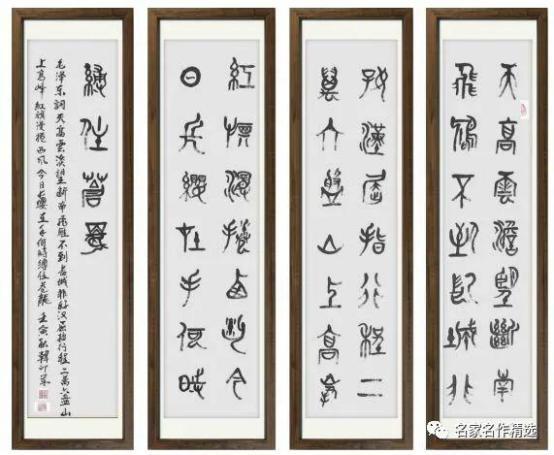 天高雲澹望斷南
飛鴈不到長城非
好漢屈指行程二
萬六盤山上高峰
紅旗漫捲西風今
日長纓在手何時
縛住蒼龍
毛泽东詞天高雲淡望断南飛雁不到長城非好汉屈指行程二萬六盤山
上高峰紅旗漫捲西风今日长缨在手何時缚住苍龍壬寅秋韓
名家名作精选